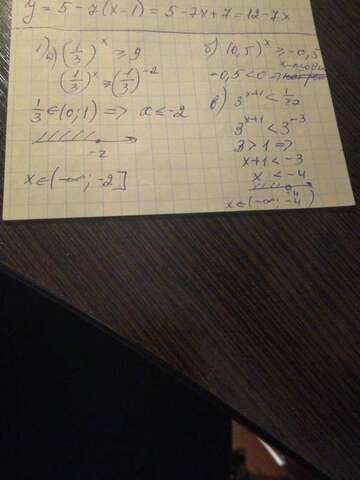 y = 5 - 7(x-1) = 5 - 7x + 7 = 12 - 7x
1) a) (1/3)^x ≥ 9
(1/3)^x ≥ (1/3)^-2
1/3 ∈ (0; 1) => x ≤ -2
-2
x ∈ (-∞; -2]
б) (0,5)^x ≥ -0,5
-0,5 < 0 =>
в) 3^x+1 < 1/27
3^x+1 < 3^-3
3 > 1 =>
x+1 < -3
x < -4
-4
x ∈ (-∞; -4)